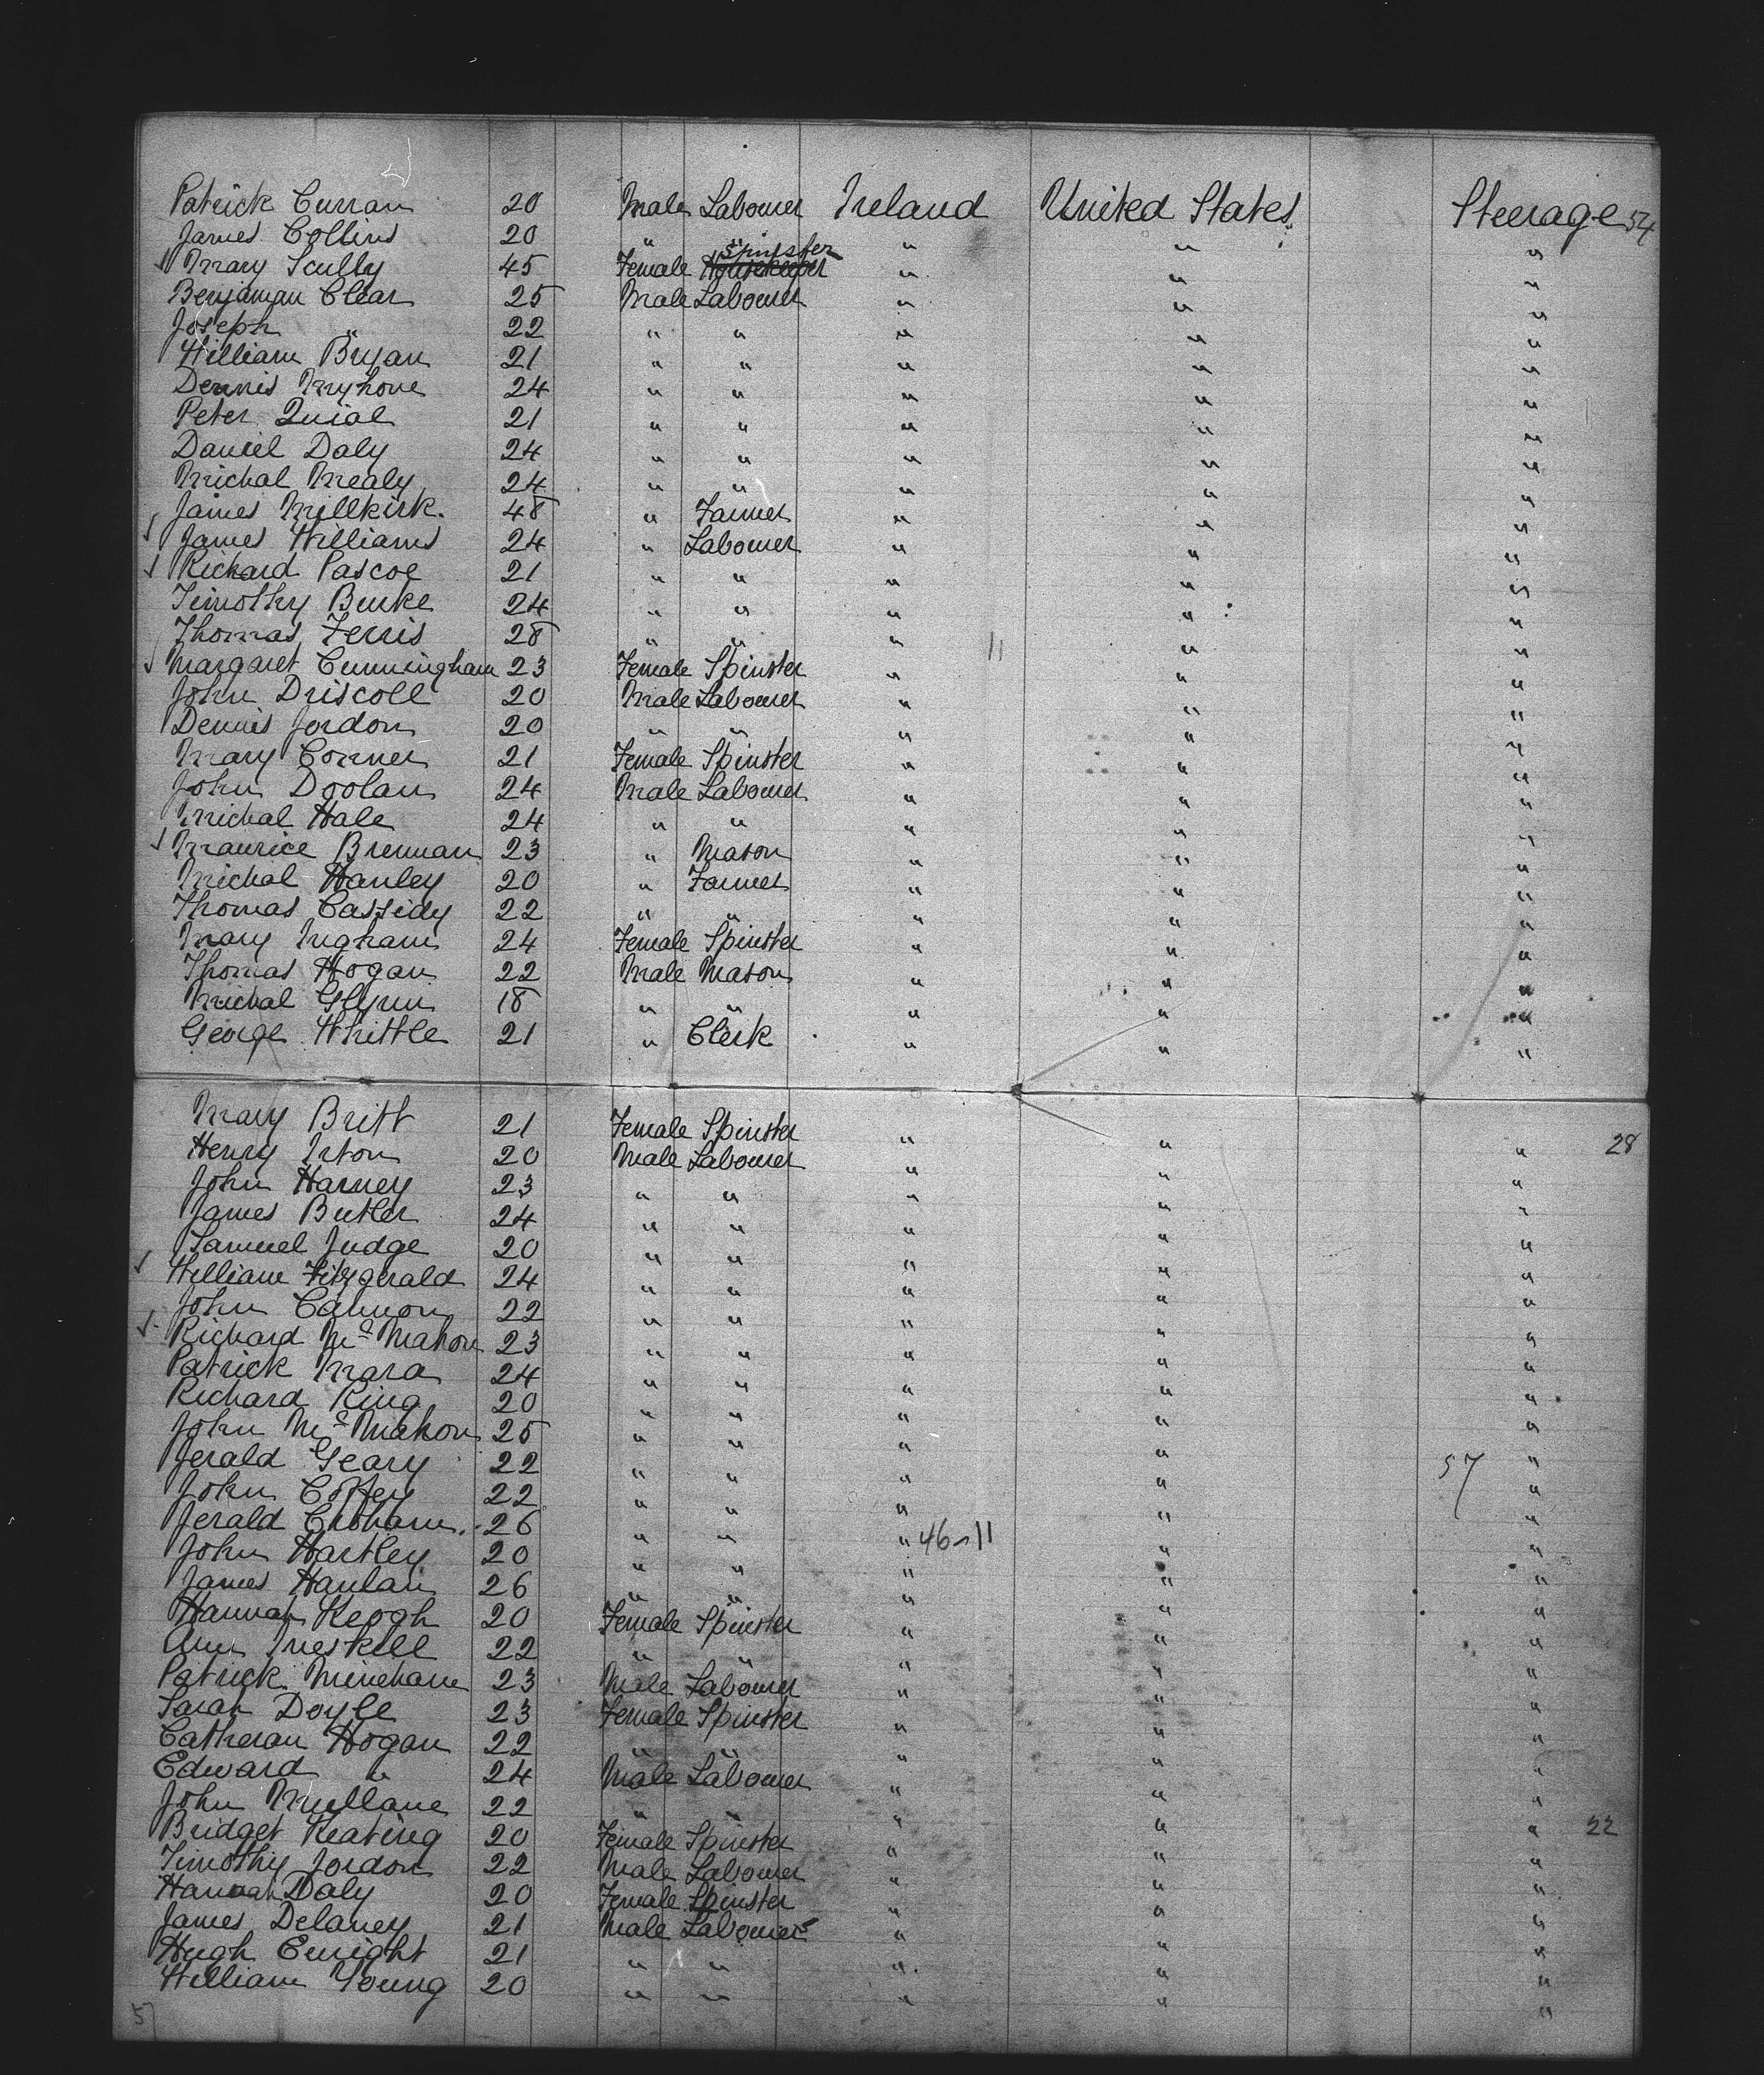 Patrick Curran 20 Male Labourer Ireland United States Steerage 54
James Collins 20 " " " " "
Mary Scully 45 Female Spinster " " "
Benjaman Clear 25 Male Labourer " " "
Joseph " 22 " " " " "
William Bryan 21 " " " " "
Dennis Myhove 24 " " " " "
Peter Quial 21 " " " " "
Daniel Daly 24 " " " " "
Michal Mealy 24 " " " " "
James Millkirk. 48 " Farmer " " "
James Williams 24 " Labourer " " "
Richard Pascoe 21 " " " " "
Timothy Burke 24 " " " " "
Thomas Ferris 28 " " " 11 " "
Margaret Cunningham 23 Female Spinster " " "
John Driscoll 20 Male Labourer " " "
Dennis Jordon 20 " " " " "
Mary Conner 21 Female Spinster " " "
John Doolan 24 Male Labourer " " "
Michal Hale 24 " " " " "
Maurice Brennan 23 " Mason " " "
Michal Hanley 20 " Farmer " " "
Thomas Cassidy 22 " " " " "
Mary Ingham 24 Female Spinster " " "
Thomas Hogan 22 Male Mason " " "
Michal Glynn 18 " " " " "
George Whittle 21 " Clerk " " "
Mary Britt 21 Female Spinster " " " 28
Henry Irton 20 Male Labourer " " "
John Harney 23 " " " " "
James Butler 24 " " " " "
Samuel Judge 20 " " " " "
William Fitzgerald 24 " " " " "
John Cannon 22 " " " " "
Richard McMahon 23 " " " " "
Patrick Mara 24 " " " " "
Richard King 20 " " " " "
John McMahon 25 " " " " "
Jerald Geary 22 " " " " 57 "
John Coffey 22 " " " " "
Jerald Croham 26 " " " 46-11 " "
John Hartley 20 " " " " "
James Hanlan 26 " " " " "
Hannah Keogh 20 Female Spinster " " "
Ann Treskell 22 " " " " "
Patrick Minehane 23 Male Labourer " " "
Sarah Doyle 23 Female Spinster " " "
Catheran Hogan 22 " " " " "
Edward " 24 Male Labourer " " "
John Mullane 22 " " " " "
Bridget Keating 20 Female Spinster " " " 22
Timothy Jordon 22 Male Labourer " " "
Hannah Daly 20 Female Spinster " " "
James Delaney 21 Male Labourer " " "
Hugh Enright 21 " " " " "
William Young 20 " " " " "
57